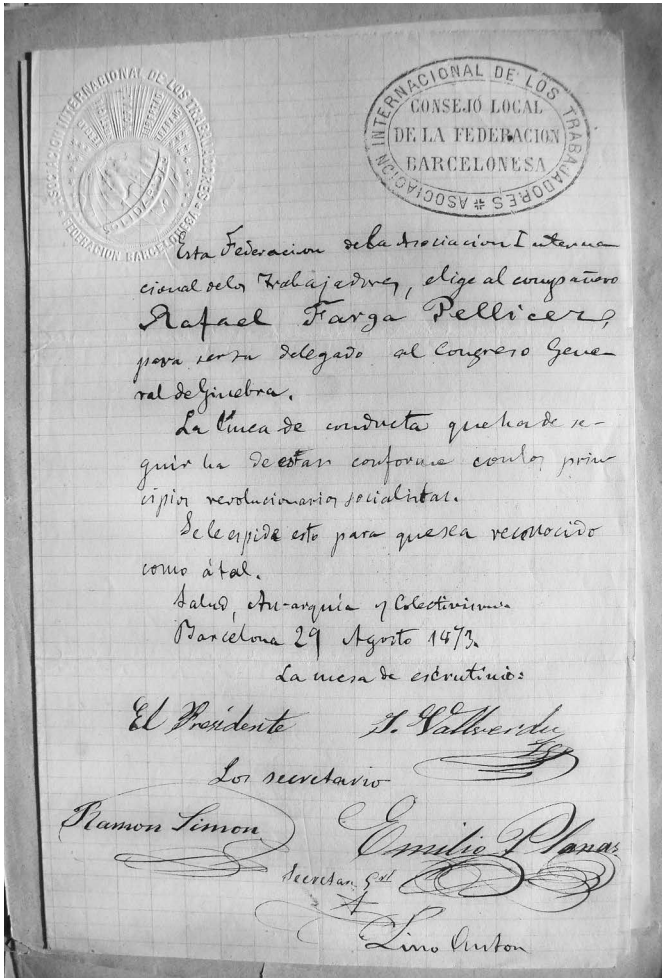 ASOCIACION INTERNACIONAL DE LOS TRABAJADORES
FEDERACION BARCELONESA
ASOCIACION INTERNACIONAL DE LOS TRABAJADORES
CONSEJO LOCAL
DE LA FEDERACION
BARCELONESA
Esta Federacion de la Asociacion Interna
cional de los Trabajadores, elige al compañero
Rafael Farga Pellicer,
para ser su delegado al Congreso Gene-
ral de Ginebra.
La línea de conducta que ha de se-
guir ha de estar conforme con los prin
cipios revolucionarios socialistas.
Se le espide esto para que sea reconocido
como á tal.
Salud, An-arquía y Colectivismo.
Barcelona 29 Agosto 1873.
La mesa de escrutinio:
El Presidente J. Vallverdu
Los secretario
Ramon Simon Emilio Planas
Secretario Gral
A
Lino Anton